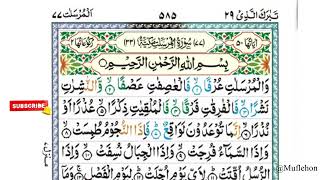 تَبٰرَكَ الَّذِىْ ٢٩ ٥٨٥ اَلْمُرْسَلٰت ٧٧
اٰيَاتُهَا (٧٧) سُوْرَةُ الْمُرْسَلٰتِ مَكِّيَّةٌ (٣٣) رُكُوْعَاتُهَا
بِسْمِ اللّٰهِ الرَّحْمٰنِ الرَّحِيْمِ
وَالْمُرْسَلٰتِ عُرْفًا ۙ﴿١﴾ فَالْعٰصِفٰتِ عَصْفًا ۙ﴿٢﴾ وَّالنّٰشِرٰتِ
نَشْرًا ۙ﴿٣﴾ فَالْفٰرِقٰتِ فَرْقًا ۙ﴿٤﴾ فَالْمُلْقِيٰتِ ذِكْرًا ۙ﴿٥﴾ عُذْرًا اَوْ
نُذْرًا ۙ﴿٦﴾ اِنَّمَا تُوْعَدُوْنَ لَوَاقِعٌ ؕ﴿٧﴾ فَاِذَا النُّجُوْمُ طُمِسَتْ ۙ﴿٨﴾
وَاِذَا السَّمَآءُ فُرِجَتْ ۙ﴿٩﴾ وَاِذَا الْجِبَالُ نُسِفَتْ ۙ﴿١٠﴾ وَاِذَا
الرُّسُلُ اُقِّتَتْ ؕ﴿١١﴾ لِاَىِّ يَوْمٍ اُجِّلَتْ ؕ﴿١٢﴾ لِيَوْمِ الْفَصْلِ ۚ﴿١٣﴾ وَمَآ
SUBSCRIBE
@Muflehon